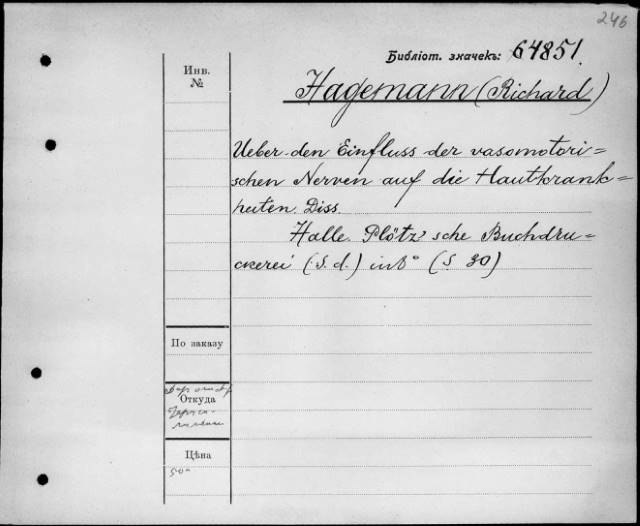 246
Библіот. значекъ: 64851.
Инв.
№
Hagemann (Richard)
Ueber den Einfluss der vasomotori=
schen Nerven auf die Hautkrank=
heiten. Diss.
Halle. Plötz'sche Buchdru=
ckerei (S. d.) in 8° (S 30)
По заказу
Откуда
Цѣна
50